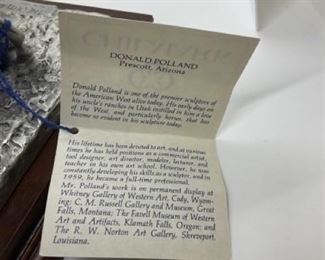 DONALD POLLAND
Prescott, Arizona
Donald Polland is one of the premier sculptors of
the American West alive today. His early days on
his uncle's ranches in Utah instilled in him a love
of the West, and particularly horses, that has
become so evident in his sculpture today.
His lifetime has been devoted to art, and at various
times he has held positions as a commercial artist,
tool designer, art director, modeler, lecturer, and
teacher in his own art school. However, he was
constantly developing his skills as a sculptor, and in
1959, he became a full-time professional.
Mr. Polland's work is on permanent display at
Whitney Gallery of Western Art, Cody, Wyom-
ing; C. M. Russell Gallery and Museum, Great
Falls, Montana; The Favell Museum of Western
Art and Artifacts, Klamath Falls, Oregon; and
The R. W. Norton Art Gallery, Shreveport,
Louisiana.